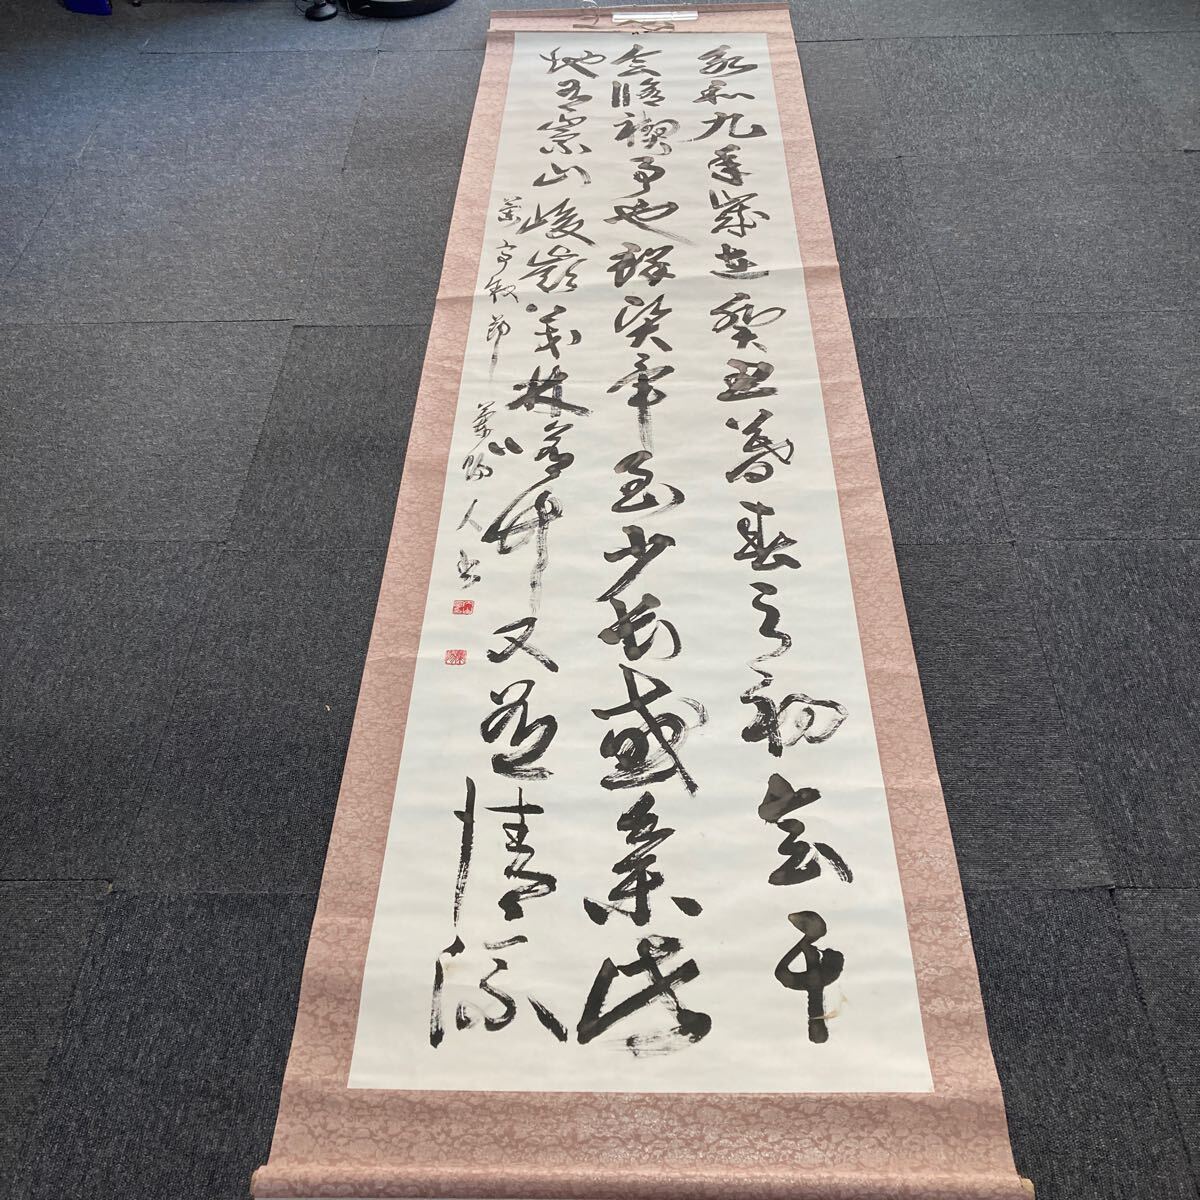 永和九年歳在癸丑暮春之初会于
会脩禊事也群賢畢至少長咸集此
地有崇山峻嶺茂林脩竹又有清流
蘭亭叙節 人書